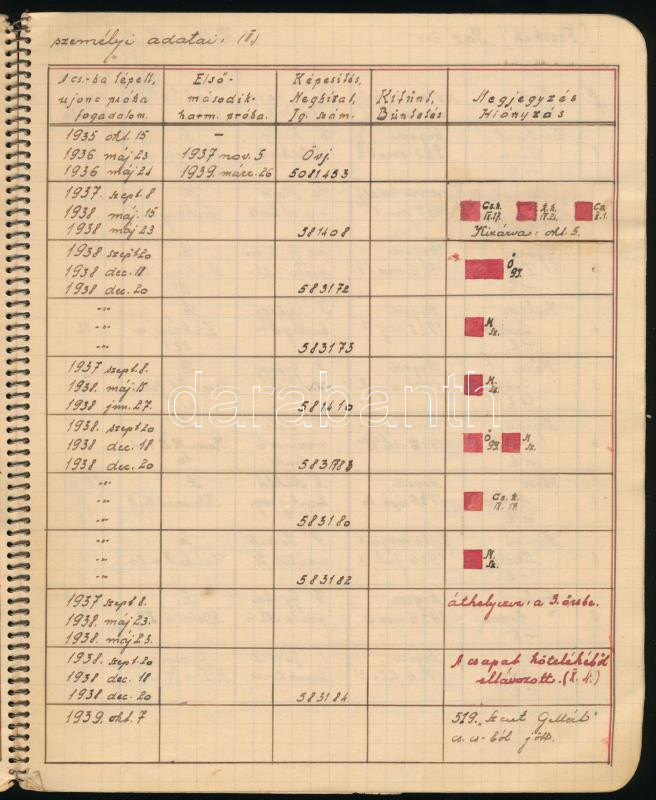 személyi adatai: (I.)
A cs.-ba lépett, Első- Képesítés, Kitünt, Megjegyzés
ujonc próba második- Megbízat, Büntetés Hiányzás
fogadalom. harm. próba. Ig. szám.
1935 okt. 15 –
1936 máj 23 1937 nov. 5 Övj.
1936 máj 24 1939. márc. 26 5081453
1937. szept. 8 Cs.k.
1938 máj. 15 IX.17.
1938 máj 23 381408 Kizárva: okt. 5.
1938 szept 20 Ö
1938 dec. 18 93.
1938 dec. 20 583172
-"- M
-"- sz.
-"- 583173
1937 szept. 8. M.
1938. máj. 15 -"- sz.
1938 jun. 27. 581410
1938. szept 20 Ö M
1938 dec. 18 93. sz.
1938 dec. 20 583783
-"- Cs. k.
-"- IX. 17.
-"- 583180
-"- M.
-"- sz.
-"- 583182
1937 szept 8. áthelyezve: a 3. őrsbe.
1938. máj 23.
1938. máj 23.
1938. szept. 20 A csapat kötelékéből
1938 dec. 18 eltávozott. (X. 4.)
1938 dec. 20 583184
1939. okt. 7 519. "Szent Gellért"
cs. cs-ből jött.
darabanth